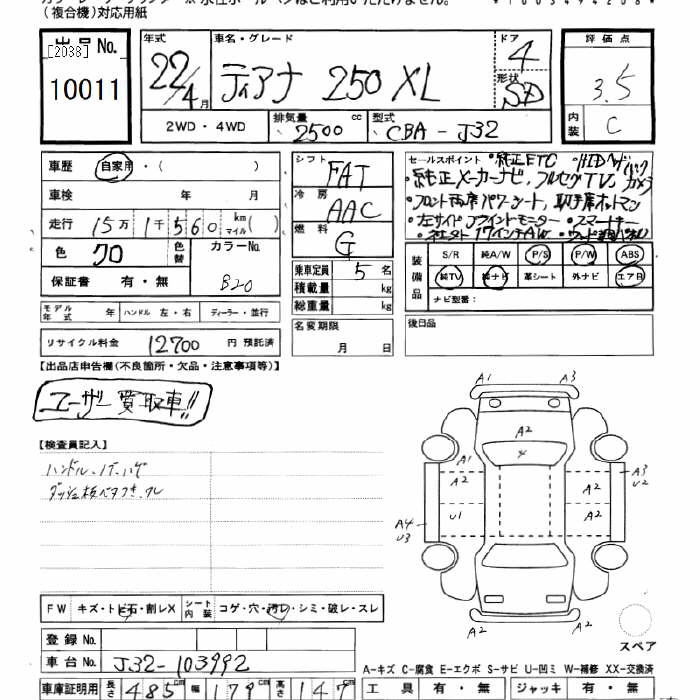 (複合機)対応用紙
出品No.
[2038]
10011
年式
22/4月
車名・グレード
ティアナ 250 XL
ドア
4
形状
SD
評価点
3.5
内装
C
2WD・4WD
排気量
2500 cc
型式
CBA-J32
車歴
自家用・( )
車検 年 月
走行 15万 1千560 km マイル( )
色
クロ
色替
カラーNo.
B20
保証書 有・無
シフト
FAT
冷房
AAC
燃料
G
乗車定員 5 名
積載量 kg
総重量 kg
セールスポイント
・純正ETC
・純正メーカーナビ、フルセグTV、
・フロント両席パワーシート、助手席オットマン
・左サイドブラインドモニター ・スマートキー
装備品
S/R 純A/W P/S P/W ABS
純TV 純ナビ 革シート 外ナビ エアB
ナビ型番:
モデル年式 年 ハンドル 左・右 ディーラー・並行
リサイクル料金 12700 円 預託済
名変期限
月 日
後日品
【出品店申告欄(不良箇所・欠品・注意事項等)】
ユーザー買取車!!
【検査員記入】
ハンドル、ノブ、ハゲ
ダッシュ板ベタつき、クレ
A1 A3
A2
4
A1
A2 A2
A3
U2
U1 A2
A4
U3
A2
A2
スペア
FW キズ・トビ石・割レX
シート内装 コゲ・穴・汚レ・シミ・破レ・スレ
登録No.
車台No. J32-103992
A-キズ C-腐食 E-エクボ S-サビ U-凹ミ W-補修 XX-交換済
車庫証明用 長さ 485 cm 幅 179 cm 高さ 147 cm
工具 有・無 ジャッキ 有・無